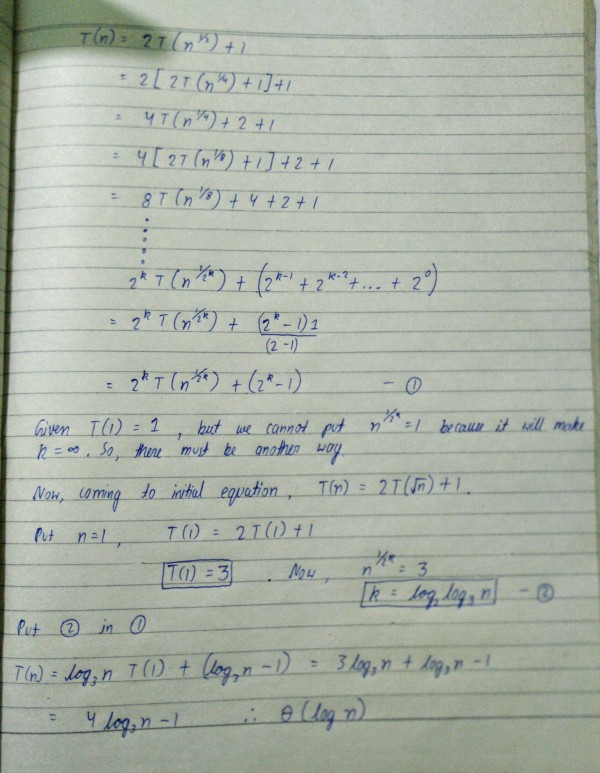 T(n) = 2T(n^{1/2}) + 1
= 2[2T(n^{1/4}) + 1] + 1
= 4T(n^{1/4}) + 2 + 1
= 4[2T(n^{1/8}) + 1] + 2 + 1
= 8T(n^{1/8}) + 4 + 2 + 1
⋮
2^k T(n^{1/2^k}) + (2^{k-1} + 2^{k-2} + ... + 2^0)
= 2^k T(n^{1/2^k}) + (2^k - 1)1 / (2 - 1)
= 2^k T(n^{1/2^k}) + (2^k - 1) — ①
Given T(1) = 1, but we cannot put n^{1/2^k} = 1 because it will make
k = ∞. So, there must be another way.
Now, coming to initial equation, T(n) = 2T(√n) + 1.
Put n=1, T(1) = 2T(1) + 1
T(1) = 3. Now, n^{1/2^k} = 3
k = log₂ log₃ n — ②
Put ② in ①
T(n) = log₃n T(1) + (log₃n - 1) = 3 log₃n + log₃n - 1
= 4 log₃n - 1 ∴ θ(log n)